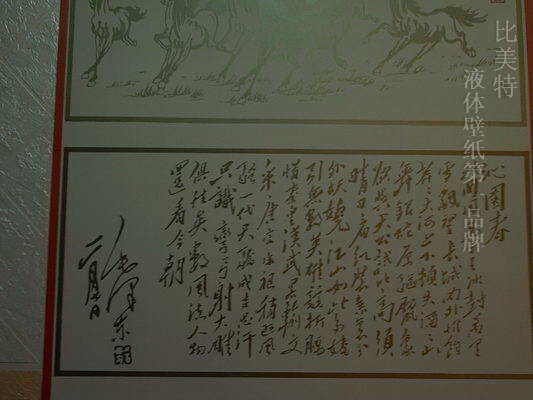 沁园春
国风光千里冰封万里
雪飘望长城内外惟馀
莽莽大河上下顿失滔滔山
舞银蛇原驰腊象
欲与天公试比高须
晴日看红装素裹分
外妖娆江山如此多娇
引无数英雄竞折腰
惜秦皇汉武略输文
采唐宗宋祖稍逊风
骚一代天骄成吉思汗
只识弯弓射大雕
俱往矣数风流人物
还看今朝
毛泽东
比美特
液体壁纸第一品牌